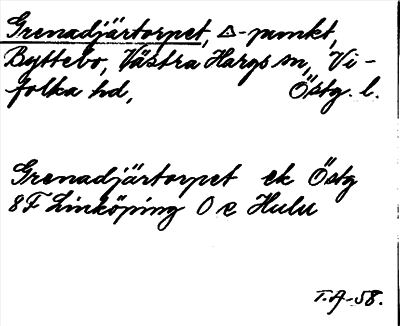 Grenadjärtorpet, △-punkt,
Byttebo, Västra Hargs sn, Vi-
folka hd, Östg. l.
Grenadjärtorpet ek Östg
8F Linköping O e Hulu
T.A-58.